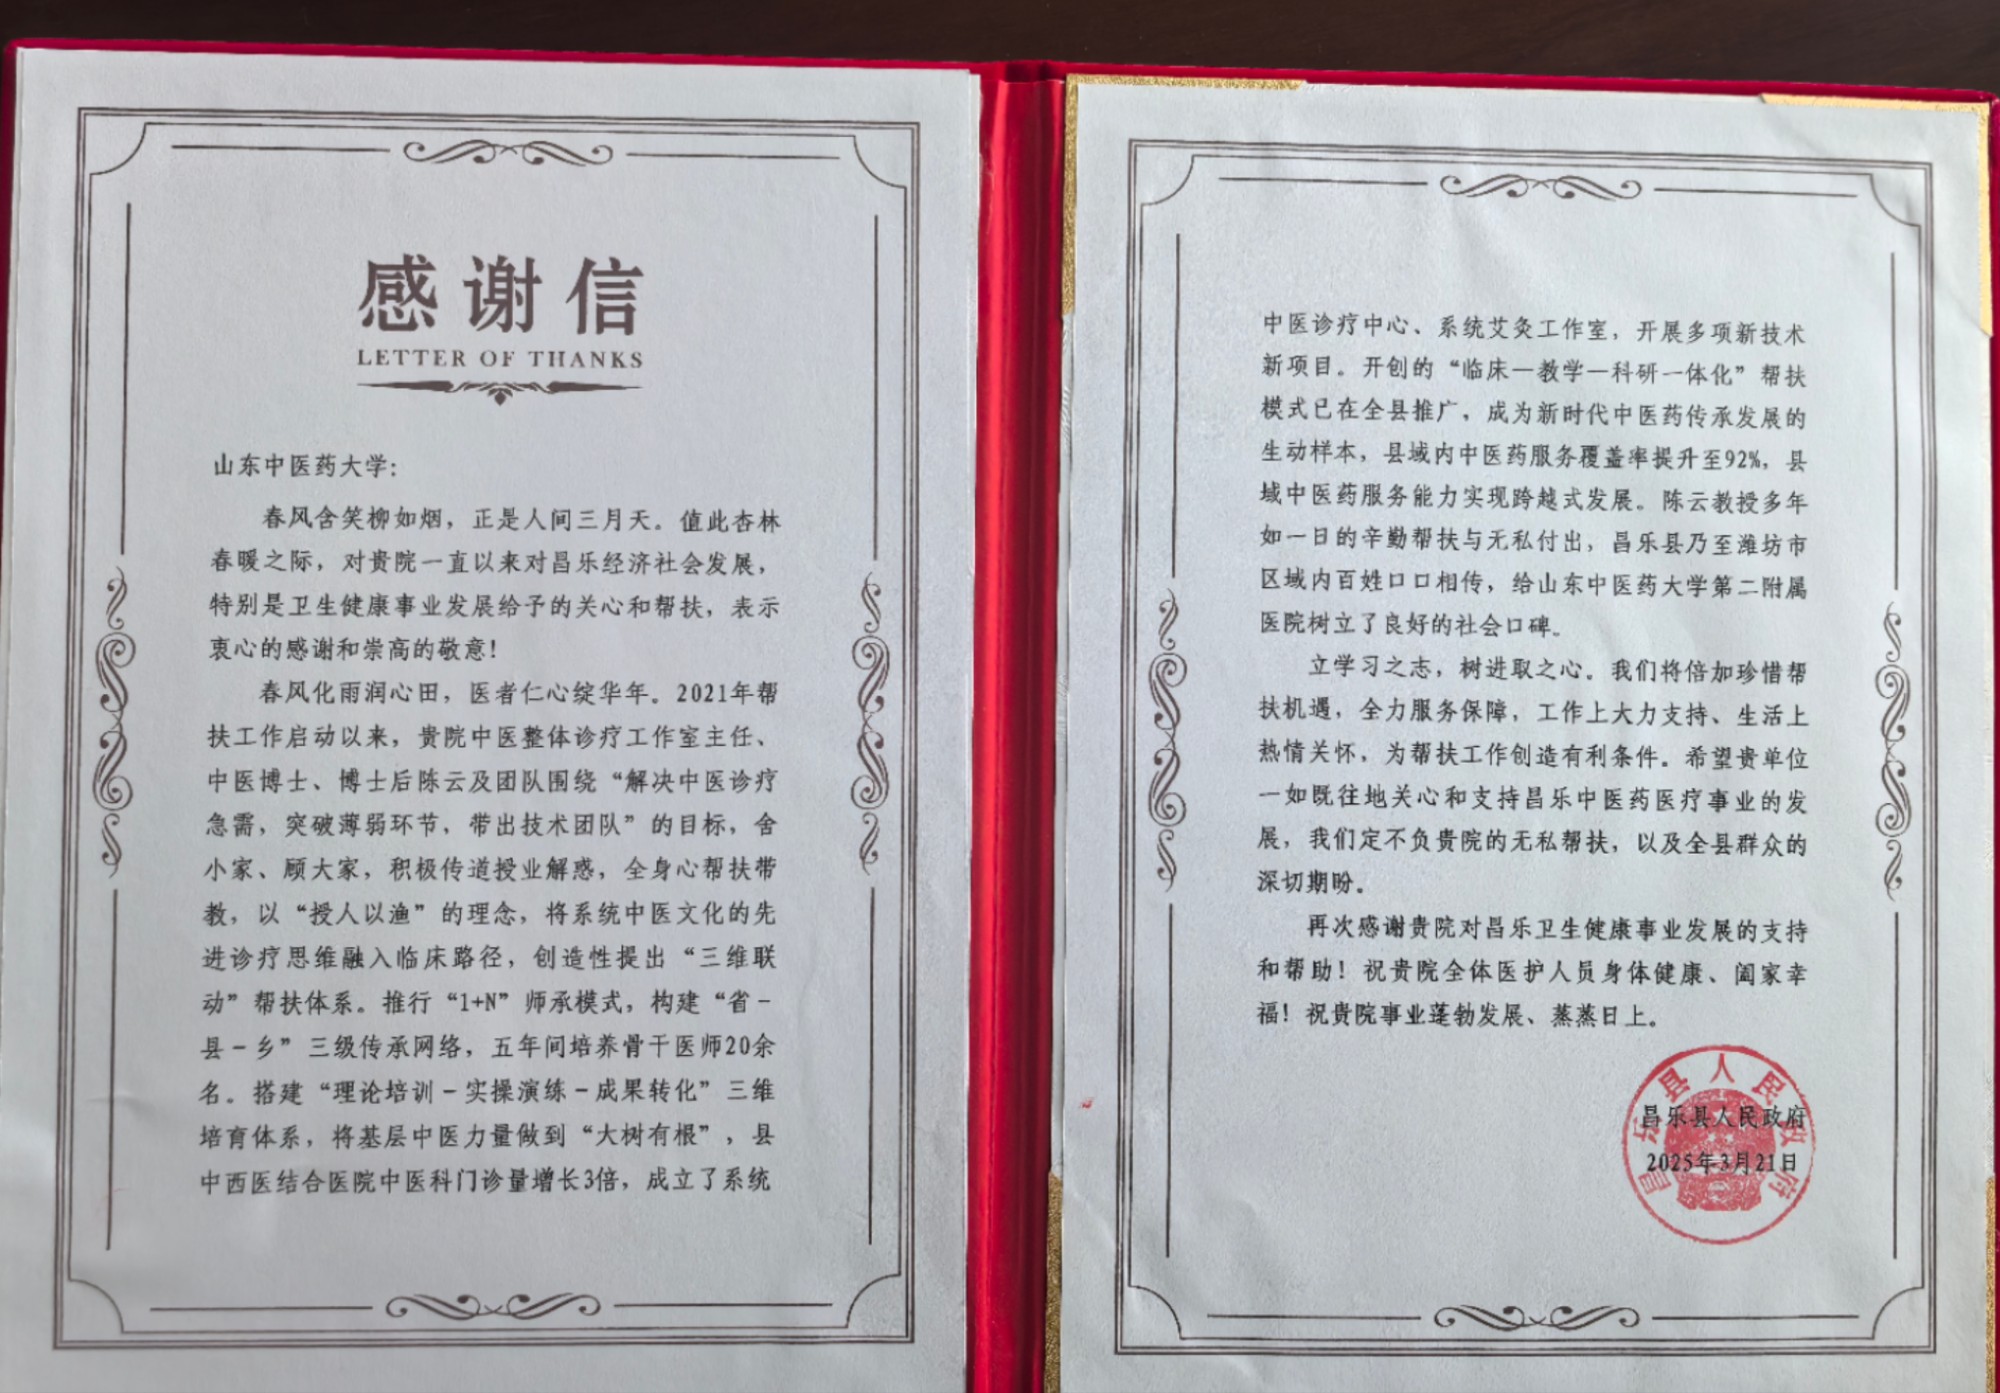 感谢信
LETTER OF THANKS
山东中医药大学：
春风含笑柳如烟，正是人间三月天。值此杏林
春暖之际，对贵院一直以来对昌乐经济社会发展，
特别是卫生健康事业发展给予的关心和帮扶，表示
衷心的感谢和崇高的敬意！
春风化雨润心田，医者仁心绽华年。2021年帮
扶工作启动以来，贵院中医整体诊疗工作室主任、
中医博士、博士后陈云及团队围绕“解决中医诊疗
急需，突破薄弱环节，带出技术团队”的目标，舍
小家、顾大家，积极传道授业解惑，全身心帮扶带
教，以“授人以渔”的理念，将系统中医文化的先
进诊疗思维融入临床路径，创造性提出“三维联
动”帮扶体系。推行“1+N”师承模式，构建“省－
县－乡”三级传承网络，五年间培养骨干医师20余
名。搭建“理论培训－实操演练－成果转化”三维
培育体系，将基层中医力量做到“大树有根”，县
中西医结合医院中医科门诊量增长3倍，成立了系统
中医诊疗中心、系统艾灸工作室，开展多项新技术
新项目。开创的“临床—教学—科研一体化”帮扶
模式已在全县推广，成为新时代中医药传承发展的
生动样本，县域内中医药服务覆盖率提升至92%，县
域中医药服务能力实现跨越式发展。陈云教授多年
如一日的辛勤帮扶与无私付出，昌乐县乃至潍坊市
区域内百姓口口相传，给山东中医药大学第二附属
医院树立了良好的社会口碑。
立学习之志，树进取之心。我们将倍加珍惜帮
扶机遇，全力服务保障，工作上大力支持、生活上
热情关怀，为帮扶工作创造有利条件。希望贵单位
一如既往地关心和支持昌乐中医药医疗事业的发
展，我们定不负贵院的无私帮扶，以及全县群众的
深切期盼。
再次感谢贵院对昌乐卫生健康事业发展的支持
和帮助！祝贵院全体医护人员身体健康、阖家幸
福！祝贵院事业蓬勃发展、蒸蒸日上。
昌乐县人民政府
2025年3月21日
昌乐县人民政府